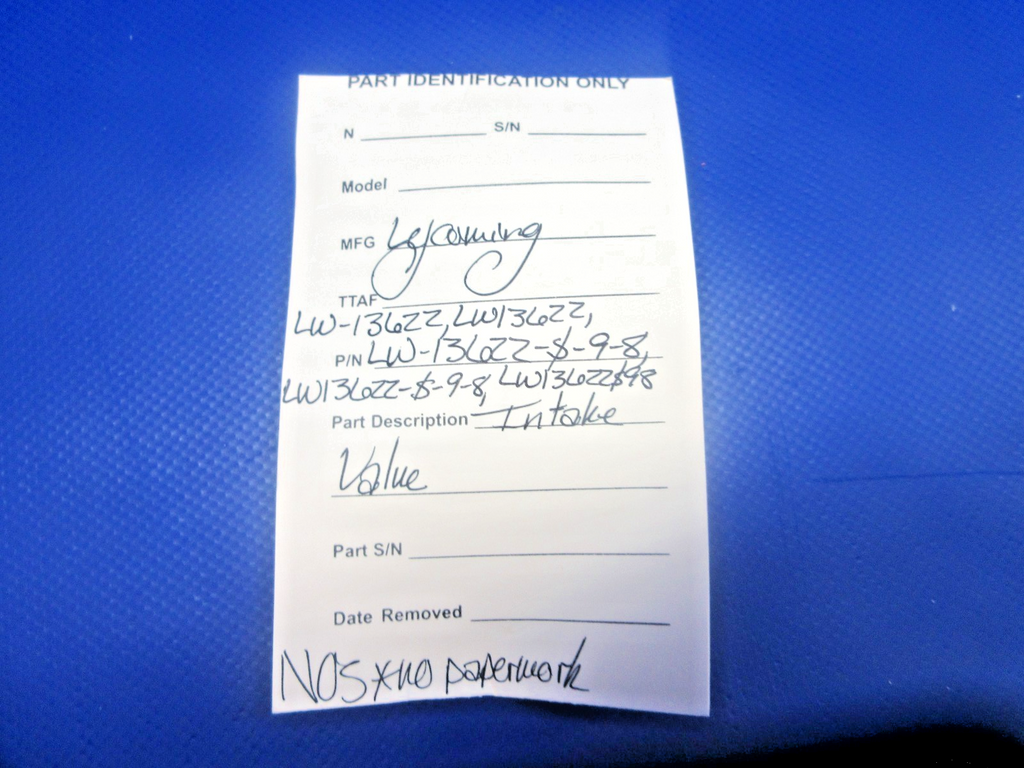 PART IDENTIFICATION ONLY
N S/N
Model
MFG Lycoming
TTAF
LW-13622, LW13622,
P/N LW-13622-$-9-8,
LW13622-$-9-8, LW13622$98
Part Description Intake
Valve
Part S/N
Date Removed
NOS *no paperwork